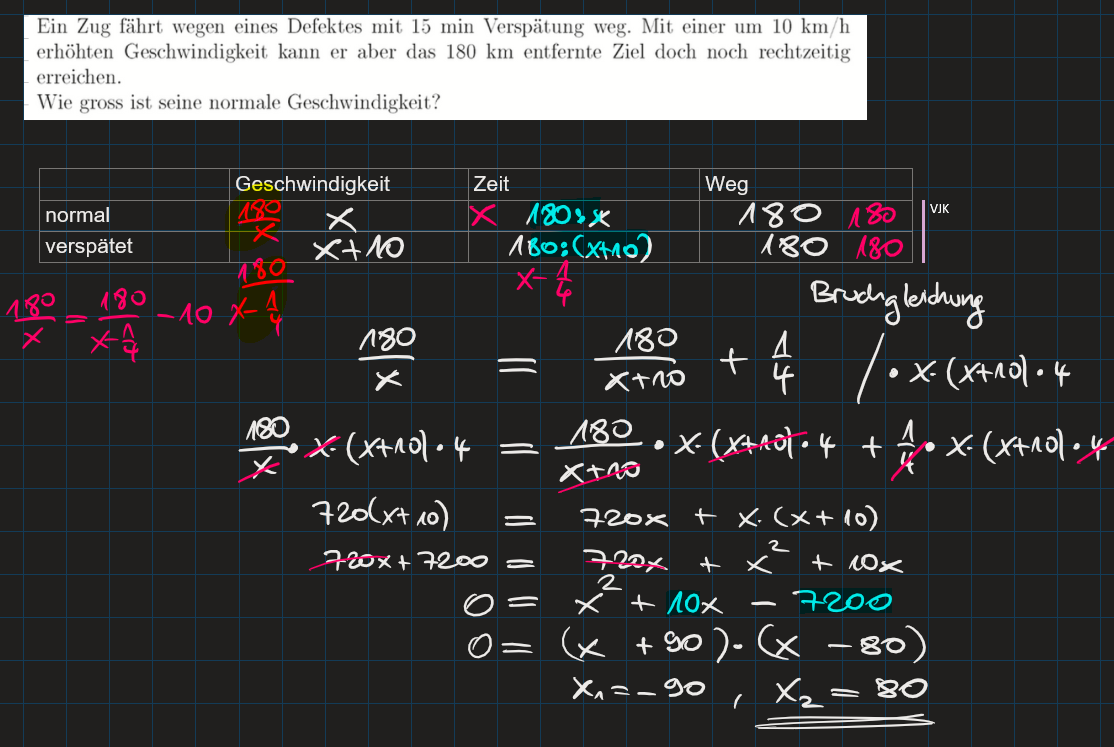 Ein Zug fährt wegen eines Defektes mit 15 min Verspätung weg. Mit einer um 10 km/h
erhöhten Geschwindigkeit kann er aber das 180 km entfernte Ziel doch noch rechtzeitig
erreichen.
Wie gross ist seine normale Geschwindigkeit?
Geschwindigkeit Zeit Weg
normal 180/x x x 180:x 180 180 VJK
verspätet x+10 180:(x+10) 180 180
180/(x-1/4) x-1/4
Bruchgleichung
180/x = 180/(x-1/4) - 10
180/x = 180/(x+10) + 1/4 / · x·(x+10)·4
180/x · x·(x+10)·4 = 180/(x+10) · x·(x+10)·4 + 1/4 · x·(x+10)·4
720(x+10) = 720x + x·(x+10)
720x+7200 = 720x + x² + 10x
0 = x² + 10x - 7200
0 = (x + 90)·(x - 80)
x₁ = -90 , x₂ = 80